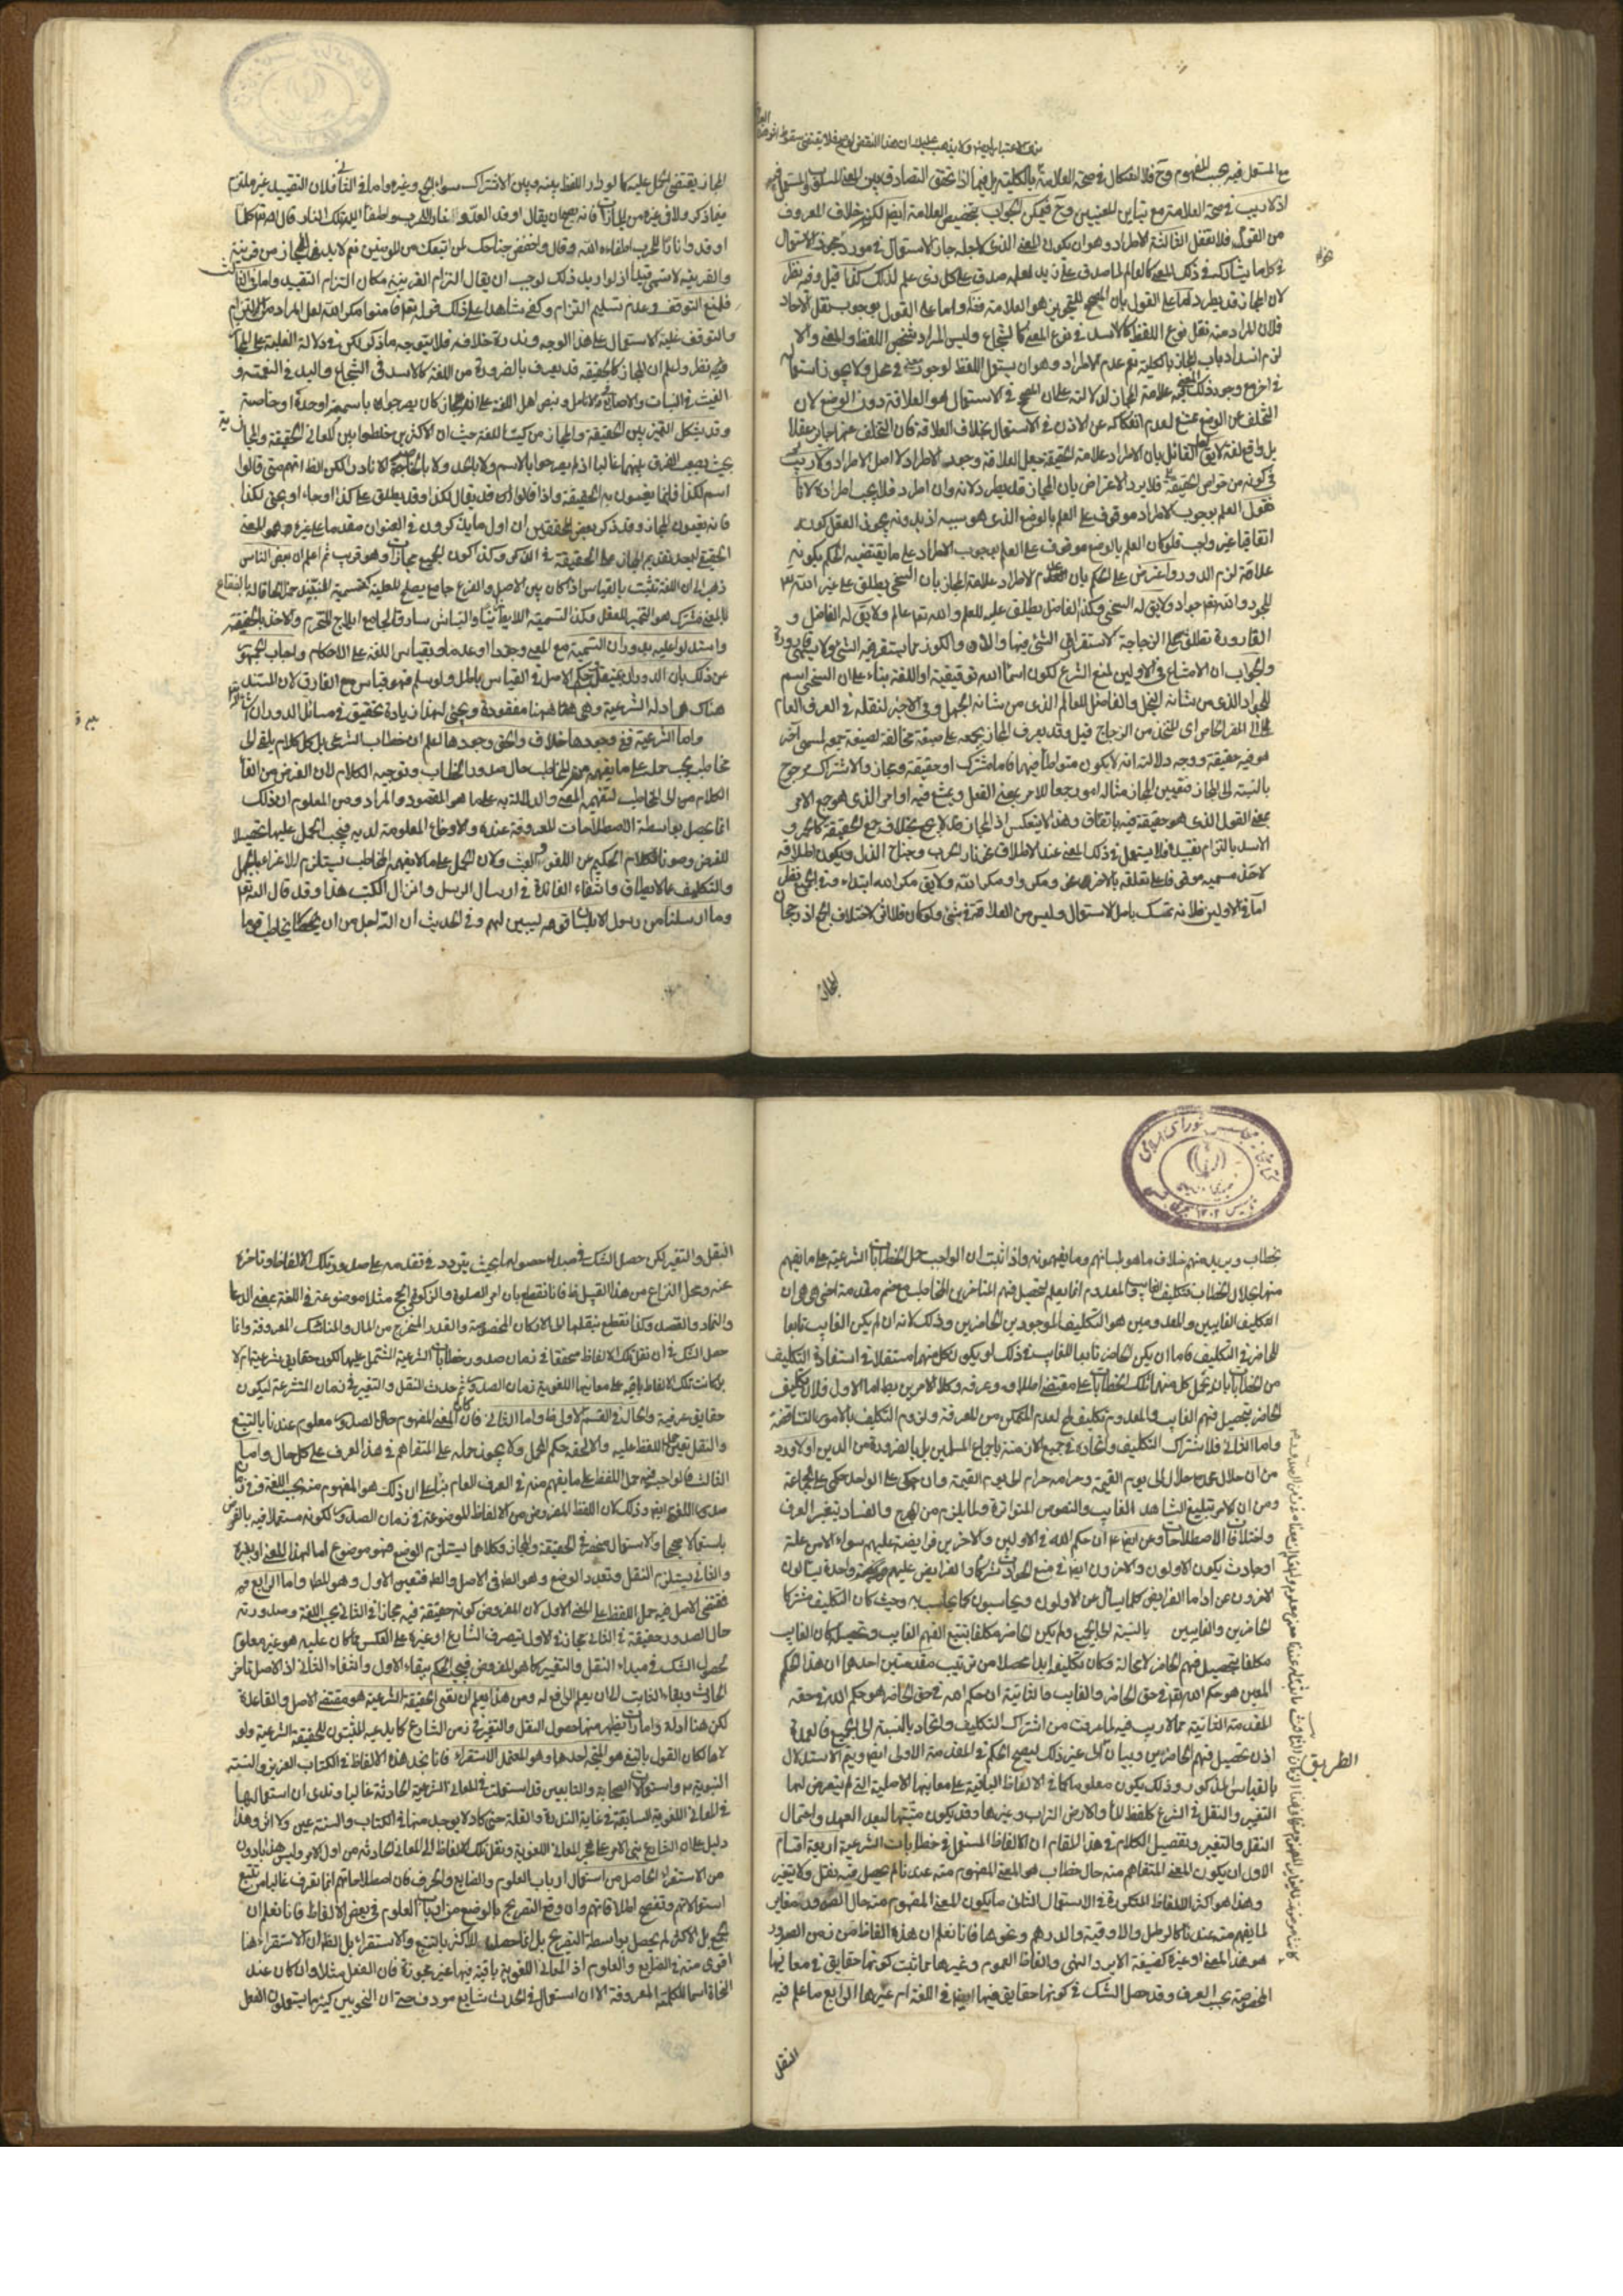 مع المستعمل فيه بحسب المفهوم وح فلا اشكال في صحة العلامة بالكلية بل فيما اذا تحقق التصادق بين المعنى المسلوب والمستعمل فيه
اذ لا ريب في صحة العلامة مع تباين المعنيين وح فيمكن الجواب بتخصيص العلامة ايضا لكنه خلاف المعروف
من القول فلا تغفل الثالثة الاطراد وهو ان يكون المعنى الذي لاجله جاز الاستعمال في مورد يجوز الاستعمال
في كل ما يشاركه في ذلك المعنى كالعالم لما صدق على زيد لعلمه صدق على كل ذي علم لذلك كذا قيل وفيه نظر
لان المجاز قد يطرد اما على القول بان المصحح للتجوز هو العلامة فظ واما على القول بوجوب نقل الاحاد
فلان المراد منه نقل نوع اللفظ كالاسد في نوع المعنى كالشجاع وليس المراد شخص اللفظ والمعنى والا
لزم انسداد باب المجاز بالكلية نعم عدم الاطراد وهو ان يستعمل اللفظ لوجود معنى في محل ولا يجوز استعماله
في اخر مع وجود ذلك المعنى فيه علامة المجاز لدلالته على ان المصحح في الاستعمال هو العلاقة دون الوضع لان
التخلف عن الوضع ممتنع لعدم انفكاكه عن الاذن في الاستعمال بخلاف العلاقة فان التخلف عنها جايز عقلا
بل واقع لغة لا يق القائل بان الاطراد علامة الحقيقة يجعل العلاقة وجوب الاطراد لا اصل الاطراد ولا ريب
في كونه من خواص الحقيقة فلا يرد الاعتراض بان المجاز قد يطرد لانه وان اطرد فلا يجب اطراده لانا
نقول العلم بوجوب الاطراد موقوف على العلم بالوضع الذي هو سببه اذ بدونه يجوز العقل كونه
اتفاقيا غير واجب فلو كان العلم بالوضع موقوف على العلم بوجوب الاطراد على ما يقتضيه الحكم بكونه
علامة لزم الدور واعترض على الحكم بان عدم الاطراد علامة المجاز بان السخي يطلق على غير الله
للجود والله تعم جواد ولا يق له السخي وكذا الفاضل يطلق عليه للعلم والله تعم عالم ولا يق له الفاضل و
القارورة تطلق على الزجاجة لاستقرار الشئ فيها والدن والكوز مما يستقر فيه الشئ ولا يسمى قارورة
والجواب ان الامتناع في الاولين لمنع الشرع لكون اسماء الله توقيفية او اللغة بناء على ان السخي اسم
للجواد الذي من شانه البخل والفاضل للعالم الذي من شانه الجهل وفي الاخير لنقله في العرف العام
الى المقر الخاص اي المتخذ من الزجاج قيل وقد يعرف المجاز بجمعه على صيغة مخالفة لصيغة جمعه لمسمى آخر
هو فيه حقيقة ووجه دلالته انه لا يكون متواطأ فيهما فاما مشترك او حقيقة ومجاز والاشتراك مرجوح
بالنسبة الى المجاز فتعيين المجاز مثاله امور جمعا للامر بمعنى الفعل ويمتنع فيه اوامر الذي هو جمع الامر
بمعنى القول الذي هو حقيقة فيه باتفاق وهذا لا ينعكس اذ المجاز قد لا يجمع بخلاف جمع الحقيقة كالحمر و
الاسد بالتزام تقييده فلا يستعمل في ذلك المعنى عند الاطلاق نحو نار الحرب وجناح الذل وبكون اطلاقه
لاحد مسمييه موقوفا على تعلقه بالاخر نحو ومكروا ومكر الله ولا يق مكر الله ابتداء وفي الجميع نظر
اما في الاولين فلانه تمسك باصل الاستعمال وليس من العلاقة في شئ ولو كان فلا اثر لاختلاف الجمع اذ رجحان
المجاز
المجاز يقتضي الحمل عليه كلما لو دار اللفظ بينه وبين الاشتراك سواء الجمع وغيره واما في الثالث فلان التقييد غير ملتزم
فيما ذكر ولا في غيره من المجازات فانه يصح ان يقال اوقد العدو نار الحرب واطفأ الله تلك النار قال الله تعم كلما
اوقدوا نارا للحرب اطفاءه الله وقال واخفض جناحك لمن اتبعك من المؤمنين نعم لا بد في المجاز من قرينة
والقرينة لا تسمى قيدا اذ لو اريد ذلك لوجب ان يقال التزام القرينة مكان التزام التقييد واما في الثالث
فلمنع التوقف وعدم تسليم التزام وكفى شاهدا على ذلك قوله تعم افامنوا مكر الله
والتوقف غلبة الاستعمال على هذا الوجه وندرة خلافه فلا يتوجه ما ذكر لكن في دلالة الغلبة على المجاز
فيه نظر واعلم ان المجاز كالحقيقة قد يعرف بالضرورة من اللغة كالاسد في الشجاع واليد في النعمة و
الغيث في النبات والاصابع في الانامل وبنص اهل اللغة على انه مجاز كان يصرحوا به باسمه او حده او خاصته
وقد يشكل التمييز بين الحقيقة والمجاز من كتب اللغة حيث ان الاكثرين خلطوا بين المعاني الحقيقة والمجازية
بحيث يصعب الفرق بينهما غالبا اذ لم يصرحوا بالاسم ولا بالحد ولا بالخاصة الا نادرا لكن الظ انهم متى قالوا
اسم لكذا فانما يعنون به الحقيقة واذا قالوا قد يقال لكذا وقد يطلق على كذا او جاء او يجئ لكذا
فانه يعنون المجاز وقد ذكر بعض المحققين ان اول ما يذكرون في العنوان مقدما على غيره هو المعنى
الحقيقي لبعد تقديم المجاز على الحقيقة في الذكر وكذا كون الجميع مجازات وهو قريب ثم اعلم ان بعض الناس
ذهب الى ان اللغة تثبت بالقياس اذا كان بين الاصل والفرع جامع يصلح للعلية كتسمية النبيذ خمرا كالحاقه بالفقاع
للمعنى مشترك هو التخمير للعقل وكذا التسمية اللايط زانيا والنباش سارقا لجامع ايلاج المحرم والاخذ بالخفية
واستدلوا عليه بدوران التسمية مع المعنى وجودا وعدما وبقياس اللغة على الاحكام واجاب الجمهور
عن ذلك بان الدوران غير مقبول وحكم الاصل في القياس باطل ولو سلم فهو قياس مع الفارق لان المستند
هناك هي ادلة الشرعية وهي ههنا مفقودة ويجئ لهذا زيادة تحقيق في مسائل الدوران
واما الشرعية ففي وجودها خلاف والحق وجودها اعلم ان خطاب الشرعي بل كل كلام يلقى الى
مخاطب يجب حمله على ما يفهمه من المخاطب حال صدور الخطاب وتوجيه الكلام لان الغرض من القاء
الكلام من الى المخاطب تفهيم المعنى والدلالة به على ما هو المقصود والمراد ومن المعلوم ان ذلك
انما يحصل بواسطة الاصطلاحات المعروفة عنده والاوضاع المعلومة لديه فيجب الحمل عليها تحصيلا
للغرض وصونا لكلام الحكيم عن اللغو والعبث ولان الحمل على ما لا يفهمه المخاطب يستلزم الاغراء بالجهل
والتكليف بما لا يطاق وانتفاء الفائدة في ارسال الرسل وانزال الكتب هذا وقد قال الله تعم
وما ارسلنا من رسول الا بلسان قومه ليبين لهم وفي الحديث ان الله اجل من ان يخاطب قوما
بخطاب ويريد منهم خلاف ما هو بلسانهم وما يفهمونه واذا ثبت ان الواجب حمل الخطابات الشرعية على ما يفهم
منها حال الخطاب فتكليف الغايب والمعدوم انما يعلم بتحصيل فهم المخاطب وضم مقدمة اخرى هي ان
التكليف الغايبين والمعدومين هو التكليف الموجودين الحاضرين وذلك لانه ان لم يكن الغايب تابعا
للحاضر في التكليف فاما ان يكون الحاضر تابعا للغايب في ذلك او يكون كل منهما مستقلا في استفادة التكليف
من الخطابات بان يحمل كل منهما تلك الخطابات على مقتضى اصطلاحه وعرفه وكلا الامرين بط اما الاول فلان تكليف
الحاضر بتحصيل فهم الغايب والمعدوم تكليف مح لعدم التمكن من المعرفة ولزوم التكليف بالامور المتناقضة
واما الثاني فلاشتراك التكليف واتحاده في جميع الازمنة باجماع المسلمين بل بالضرورة من الدين او لا ورد
من ان حلال محمد حلال الى يوم القيمة وحرامه حرام الى يوم القيمة وان حكمي على الواحد حكمي على الجماعة
ومن ان الامر بتبليغ الشاهد الغايب والنصوص المتواترة ولما يلزم من الهرج والفساد بتغير العرف
واختلاف الاصطلاحات وعن ايضا ان حكم الله في الاولين والاخرين وفرايضه عليهم سواء الا من علة
او حادث يكون الاولون والاخرون ايضا في منع الحوادث شركاء والفرايض عليهم واحدة يسئل
الاخرون عن اداء الفرايض كما يسأل عن الاولون ويحاسبون كما يحاسبون به وحيث كان التكليف مشتركا
الحاضرين والغايبين بالنسبة الى الجميع ولم يكن الحاضر مكلفا بتتبع الفهم الغايب وتحصيله كان الغايب
مكلفا بتحصيل فهم الحاضر لا محالة وكان تكليفه ايضا محصلا من ترتيب مقدمتين احدهما ان هذا الحكم
المعين هو حكم الله تعم في حق الحاضر والغايب والثانية ان حكم الله في حق الحاضر هو حكم الله في حقه
المقدمة الثانية مما لا ريب فيه لما عرفت من اشتراك التكليف واتحاده بالنسبة الى الجميع فالعمدة
اذن تحصيل فهم الحاضرين وبيان الى غير ذلك ليصح الحكم في المقدمة الاولى ايضا ويتم الاستدلال
بالقياس المذكور وذلك يكون معلوما كما في الالفاظ الباقية على معانيها الاصلية التي لم يتعرض لها
التغيير والنقل في الشرع كلفظ الماء والارض والتراب وغيرها وقد يكون مشتبها لبعد العهد واحتمال
النقل والتغيير وتفصيل الكلام في هذا المقام ان الالفاظ المستعمل في خطابات الشرعية اربعة اقسام
الاول ان يكون المعنى المتفاهم منه حال خطاب هو المعنى المفهوم منه عندنا لم يحصل فيه نقل ولا تغير
وهذا هو اكثر اللفاظ المتكررة في الاستعمال الثاني ما يكون المعنى المفهوم منه حال الصدور مغاير
لما يفهم منه عندنا كالرطل والاوقية والدرهم ونحوها فانا نعلم ان هذه الالفاظ من زمن الصدور
هو هذا المعنى او غيره كصيغة الامر والنهي والفاظ العموم وغيرها مما ثبت كونها حقايق في معانيها
المخصوصة بحسب العرف وقد حصل الشك في كونها حقايق فيها ايضا في اللغة ام غيرها الرابع ما علم فيه
الطريق
النقل
النقل والتغير لكن حصل الشك في مبدء حصولها بحيث يتردد في تقدمه على صدور تلك الالفاظ وتاخره
عنه ومحل النزاع من هذا القبيل ظ فانا نقطع بان امر الصلوة والزكوة والحج مثلا موضوعة في اللغة بمعنى الدعا
والنماء والقصد وكذا نقطع بنقلها الى الاركان المخصوصة والقدر المخرج من المال والمناسك المعروفة وانما
حصل الشك في ان نقل تلك الالفاظ متحققا في زمان صدور خطابات الشرعية المشتمل عليها لكون حقايق شرعية ام لا
بل كانت تلك الالفاظ باقية على معانيها اللغوية زمان الصدور ثم حدث النقل والتغير في زمان المتشرعة ليكون
حقايق عرفية والحال في القسم الاول ظ واما الثاني فان كان المعنى المفهوم حال الصدور معلوم عندنا بالتتبع
والنقل تعين حمل اللفظ عليه والا لحقه حكم المجمل ولا يجوز حمله على المتفاهم في هذا العرف على كل حال واما
الثالث فالواجب فيه حمل اللفظ على ما يفهم منه في العرف العام بناء على ان ذلك هو المفهوم منه بحسب اللغة وفي زمان
صدور اللغوي ايضا وذلك لان اللفظ المفروض من الالفاظ الموضوعة في زمان الصدور لكونه مستعملا فيه بالفرض
باستعمال صحيح والاستعمال منحصر في الحقيقة والمجاز وكلاهما يستلزم الوضع فهو موضوع اما لهذا المعنى او لغيره
والثاني يستلزم النقل وتعدد الوضع وهو الظ في الاصل والظ فتعين الاول وهو المط واما الرابع فمقتضى
الاصل فيه حمل اللفظ على المعنى الاول لان المفروض كونه حقيقة فيه مجازا في الثاني بحسب اللغة وصدورته
حال الصدور حقيقة في الثاني مجاز في الاول بتصرف الشارع او غيره على العكس مما كان عليه هو غير معلوم
لحصول الشك في مبداء النقل والتغيير كما هو المفروض فيجب الحكم ببقاء الاول وانتفاء الثاني اذ الاصل تاخر
الحادث وبقاء الثابت الى ان يعلم الرافع له ومن هذا يعلم ان نفي الحقيقة الشرعية هو مقتضى الاصل والقاعدة
لكن هنا ادلة وامارات يظهر منها حصول النقل والتغير في زمن الشارع كما يدعيه المثبتون للحقيقة الشرعية ولو
لاها لكان القول بالنفي هو المتجه احدها وهو المعتمد الاستقراء فانا نجد هذه الالفاظ في الكتاب العزيز والسنة
النبوية واستعمالات الصحابة والتابعين قد استعملت في المعاني الشرعية الحادثة غالبا ونرى ان استعمالها
في المعاني اللغوية السابقة في غاية الندرة والقلة حتى كاد لا يوجد منها في الكتاب والسنة عين ولا اثر وهذا
دليل على ان الشارع بنى الامر على هجر المعاني اللغوية ونقل تلك الالفاظ الى المعاني الحادثة من اول الامر وليس هذا بادون
من الاستقراء الحاصل من استعمال ارباب العلوم والصنايع والحرف فان اصطلاحاتهم انما تعرف غالبا من تتبع
استعمالاتهم وتفحص اطلاقاتهم وان وقع التصريح بالوضع من ارباب العلوم في بعض الالفاظ فانا نعلم ان
الجميع بل الاكثر لم يحصل بواسطة التصريح بل انما حصل للاكثر بالتتبع والاستقراء بل الظ ان الاستقراء هنا
اقوى منه في الصنايع والعلوم اذ المعاني اللغوية باقية فيها غير مهجورة فان الفعل مثلا وان كان عند
النحاة اسما للكلمة المعروفة الا ان استعمال في الحدث شايع معروف حتى ان النحويين كثيرا ما يستعملون الفعل